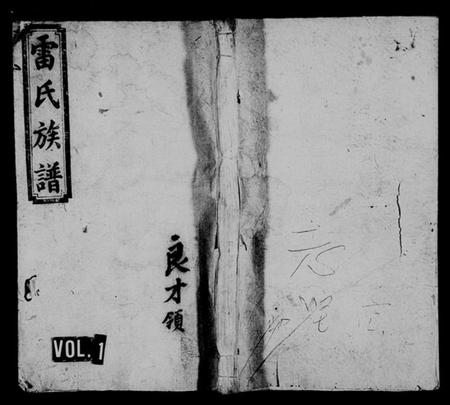 雷氏族譜
良才領
VOL. 1